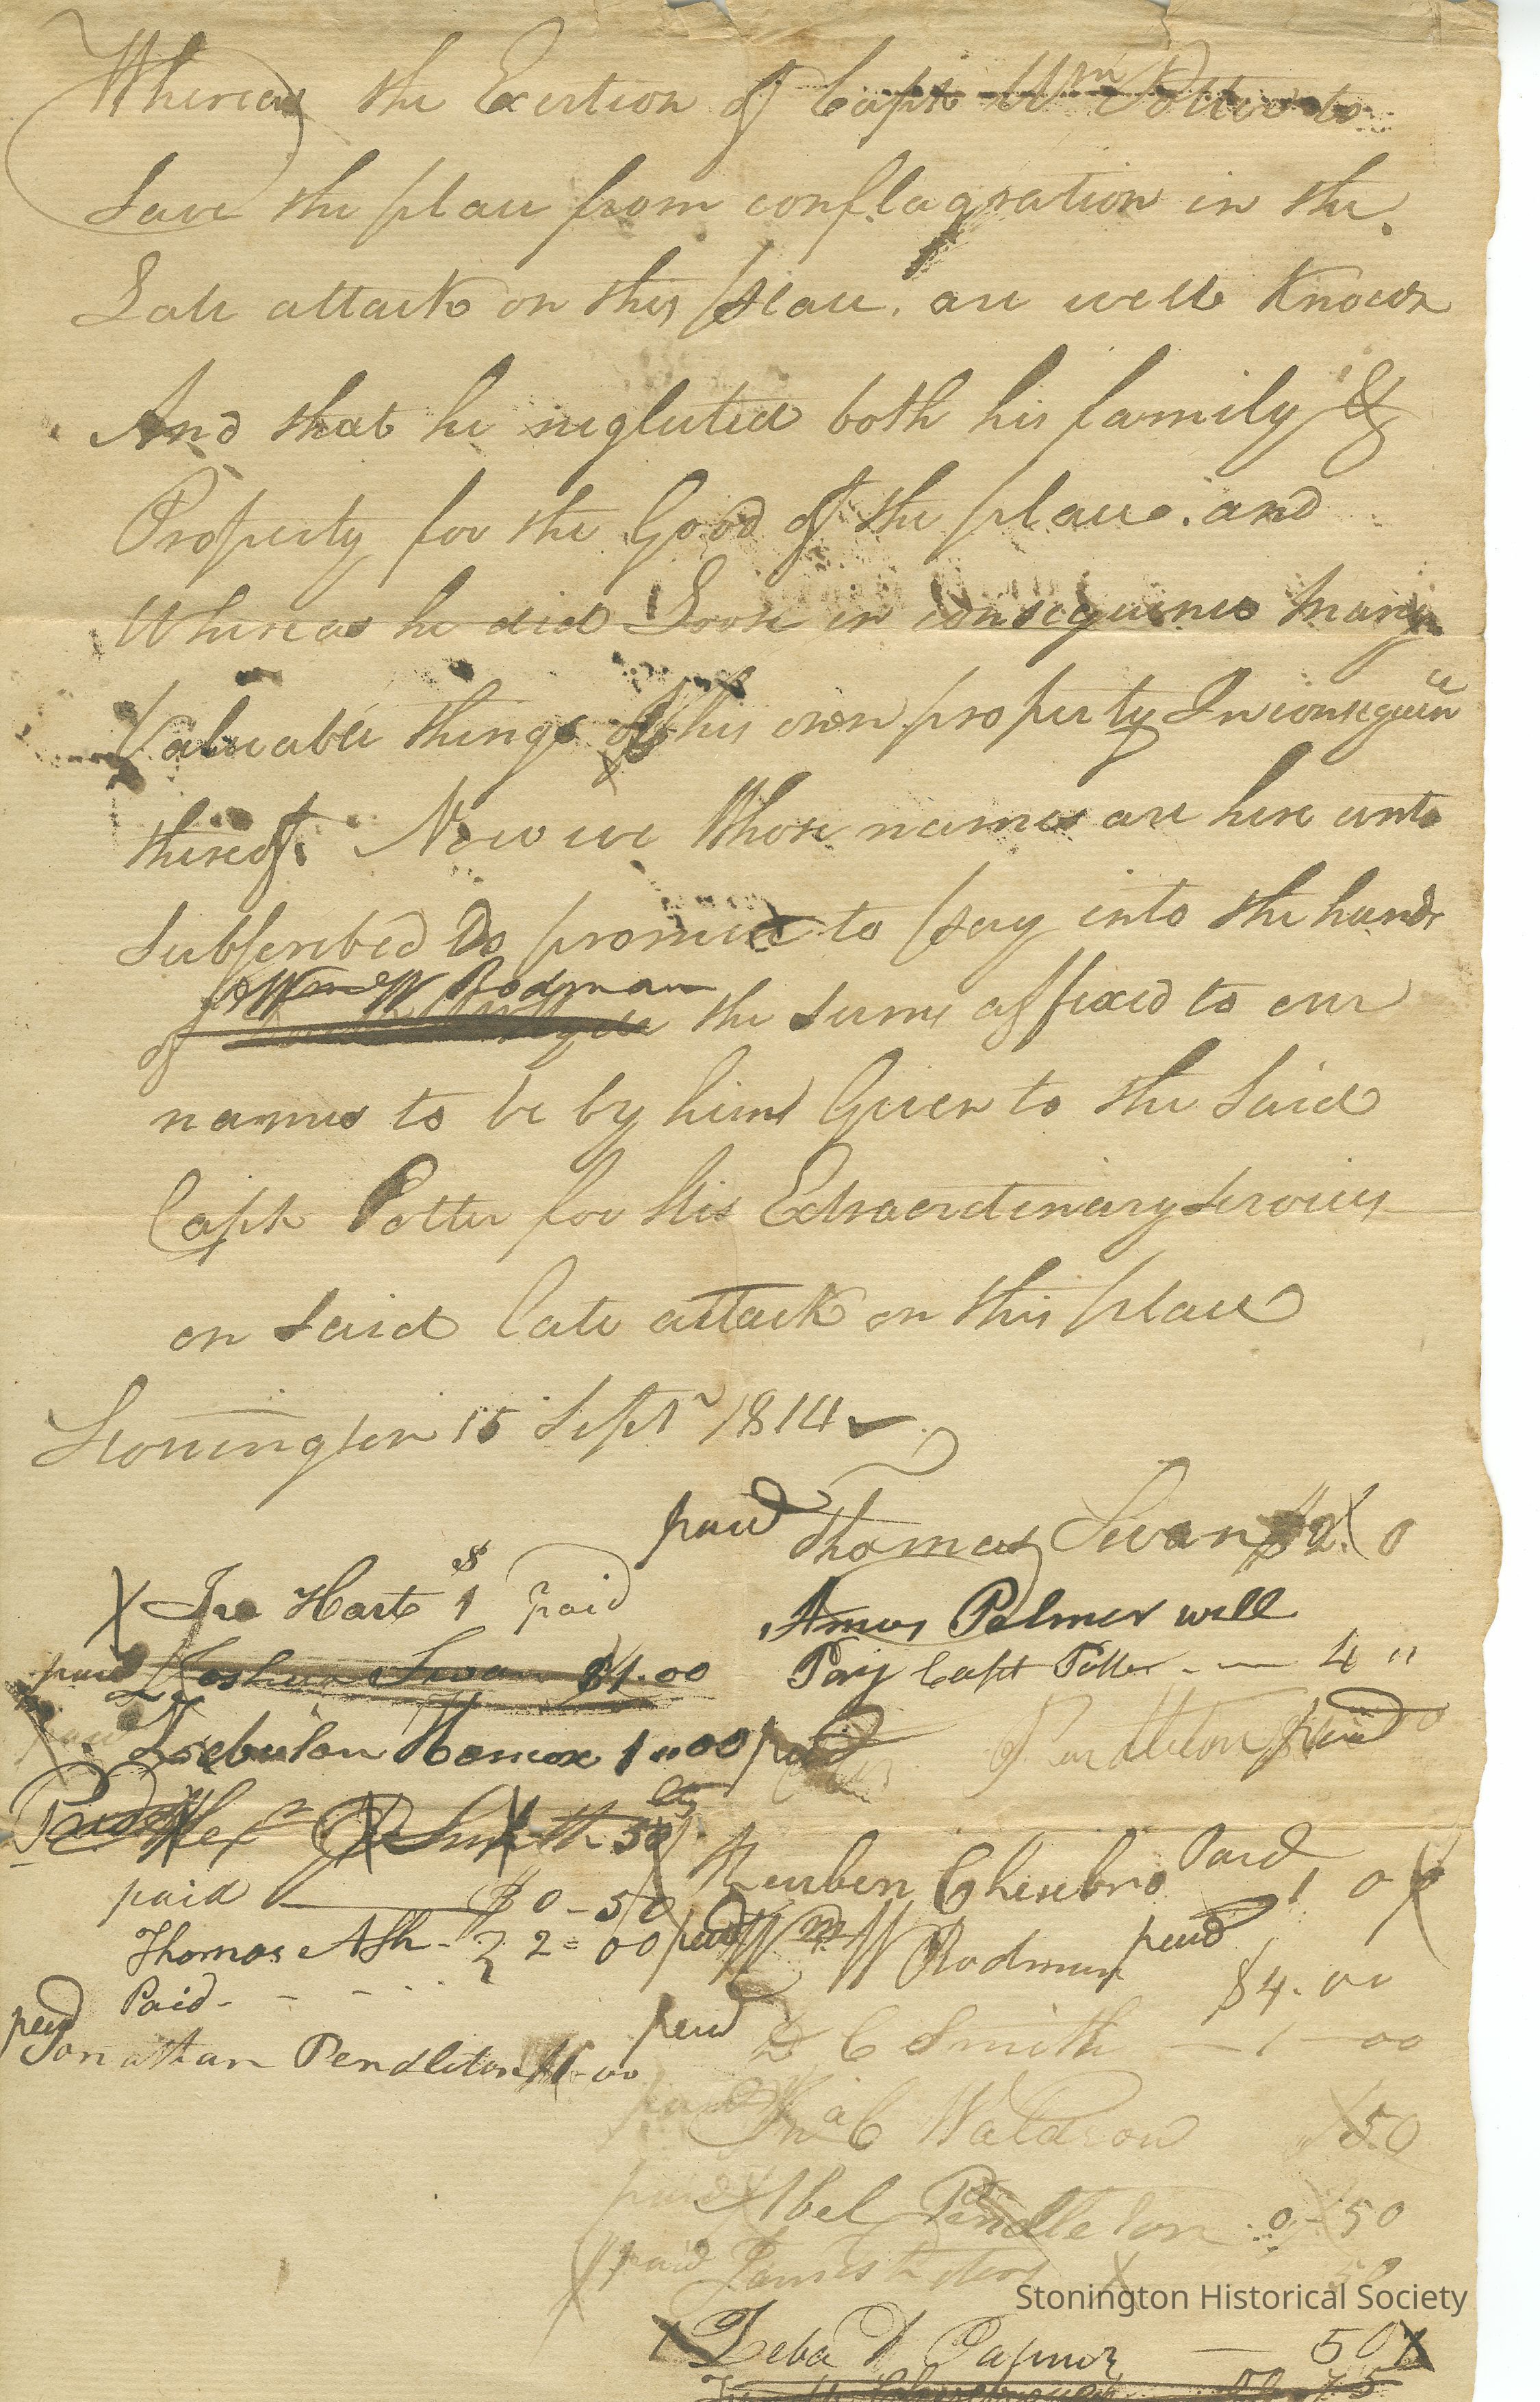 Whereas the Exertion of Capt Wm Potter to
Save the place from conflagration in the
Late attack on this place, are well Known
And that he neglected both his family &
Property for the Good of the place. and
Whereas he did Loose in consequence many
Valuable things of his own property In consequence
thereof. Now we Whose names are here unto
Subscribed Do promise to pay into the hands
of Wm W Rodman
of the sums affixed to our
names to be by him Given to the Said
Capt Potter for his Extraordinary Services
on Said late attack on this place
Stonington 15 Sept 1814
paid Thomas Swan $2. 0
X Ira Hart $1 paid
Amos Palmer will
Pay Capt Potter - - 4 "
paid Joshua Swan $1.00
Zebulon Hancox 1"00 paid
Pendleton paid
Paid Alexr G Smith 50
paid $0-50
Reuben Chesebro Paid 1 0
Thomas Ash - 2=00 paid
Paid - - - -
Wm W Rodman paid $4.00
paid Jonathan Pendleton $1-00
paid D C Smith - 1-00
paid C Waldron 50
paid Abel Pendleton 0-50
paid James 50
Stonington Historical Society
X Zeba D Palmer - 50 X
75